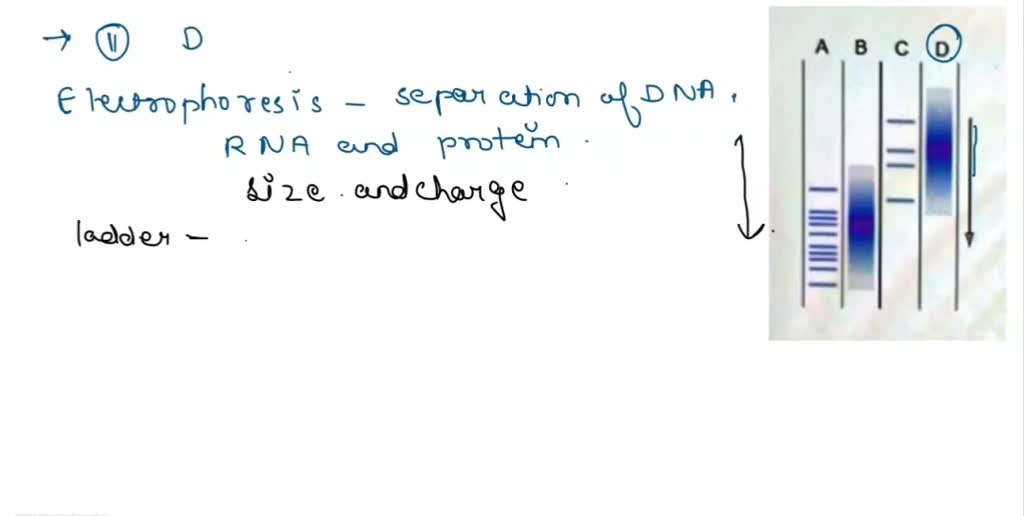 → 11 D
Electrophoresis - separation of DNA,
RNA and protein.
size and charge
ladder -
A B C D